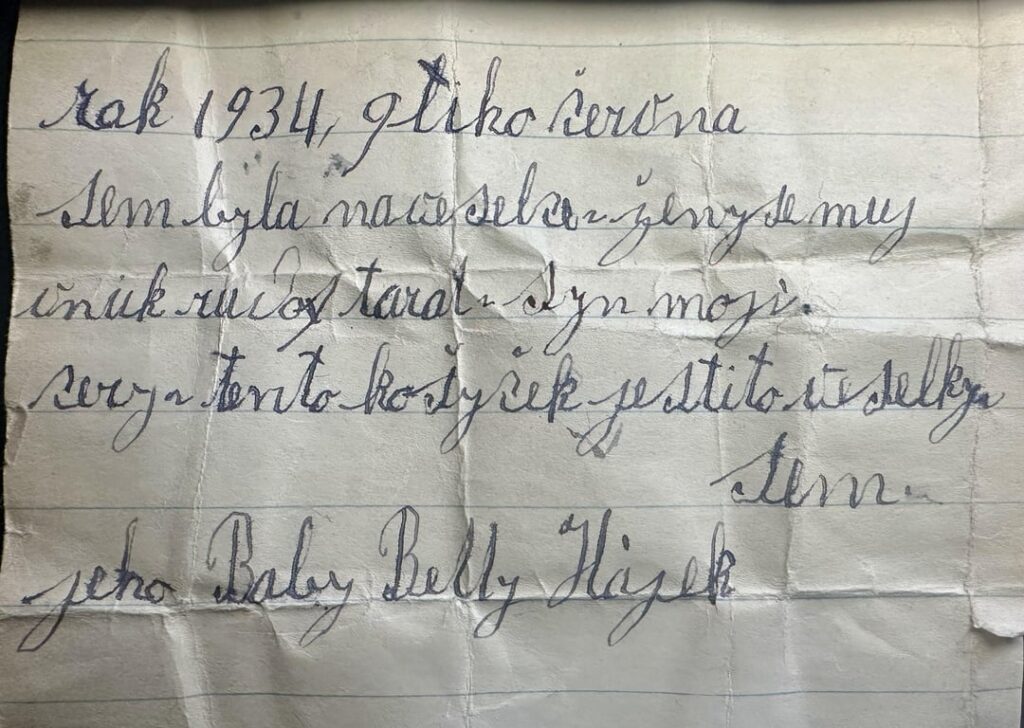 rok 1934, 9tiho června
sem byla na veselce ženy se muj
vnuk rudos taral syn moji
cery tento košyček je stito veselky
sem
jeho Baby Betty Hájek